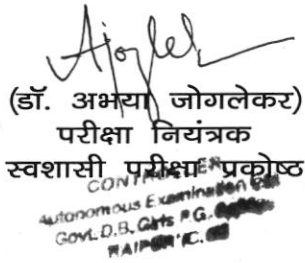 (डॉ. अभया जोगलेकर)
परीक्षा नियंत्रक
स्वशासी परीक्षा प्रकोष्ठ
CONTROLLER
Autonomous Examination
Govt. D.B. Girls P.G.
RAIPUR C.